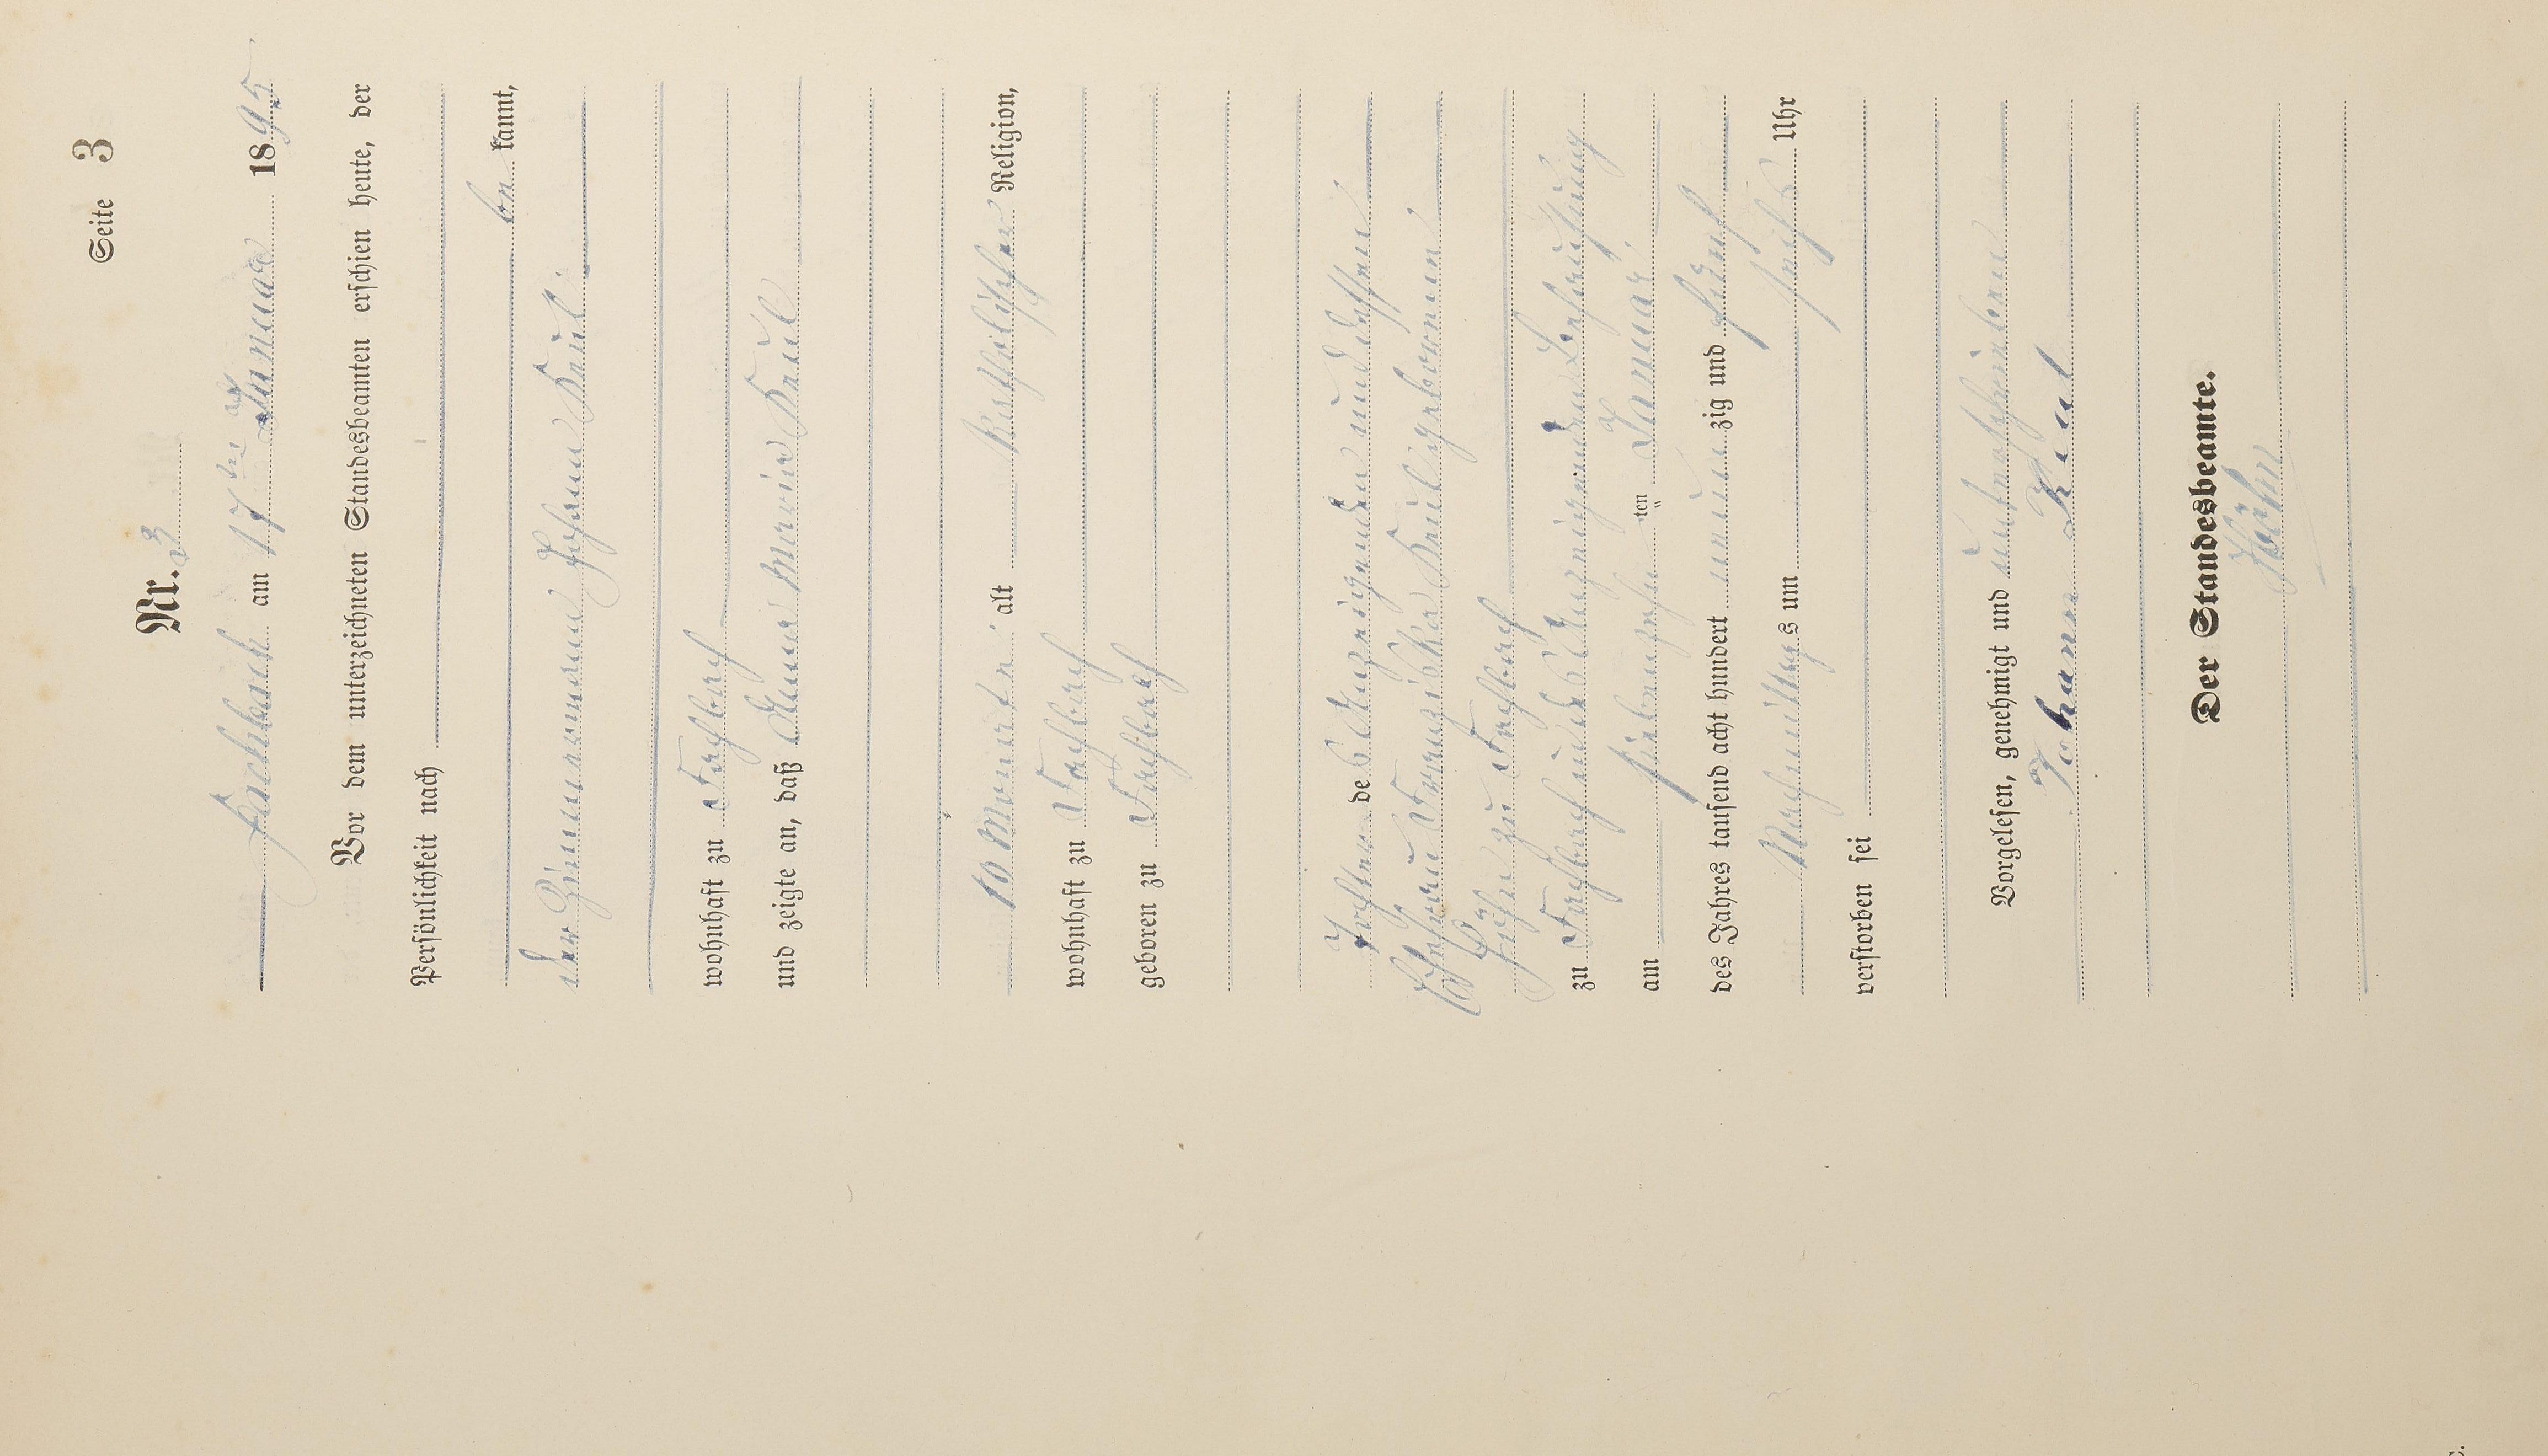 Seite 3
Nr. 3
Fachbach am 17ten Januar 1895
Vor dem unterzeichneten Standesbeamten erschien heute, der
Persönlichkeit nach
be kannt,
der Zimmermann Johann Keul
wohnhaft zu Fachbach
und zeigte an, daß Anna Maria Keul
10 Monate alt katholischer Religion,
wohnhaft zu Fachbach
geboren zu Fachbach
Tochter des Anzeigenden und dessen
Ehefrau Franziska Keul geborenen
zu Fachbach
zu Fachbach in des Anzeigenden Behausung
am siebenzehnten Januar
des Jahres tausend acht hundert neunzig und fünf
Nachmittags um sechs Uhr
verstorben sei
Vorgelesen, genehmigt und unterschrieben
Johann Keul
Der Standesbeamte.